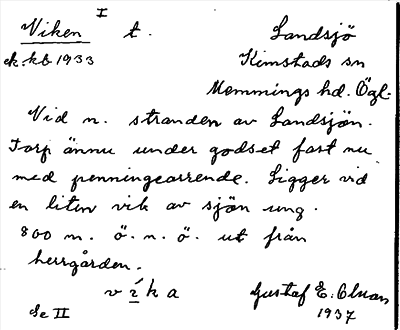 Viken I t. Landsjö
ek kb 1933 Kimstads sn
Memmings hd. Ögl.
Vid n. stranden av Landsjön.
Torp ännu under godset fast nu
med penningearrende. Ligger vid
en liten vik av sjön ung.
800 m. ö. n. ö. ut från
herrgården.
víka Gustaf E. Olsson
Se II 1937